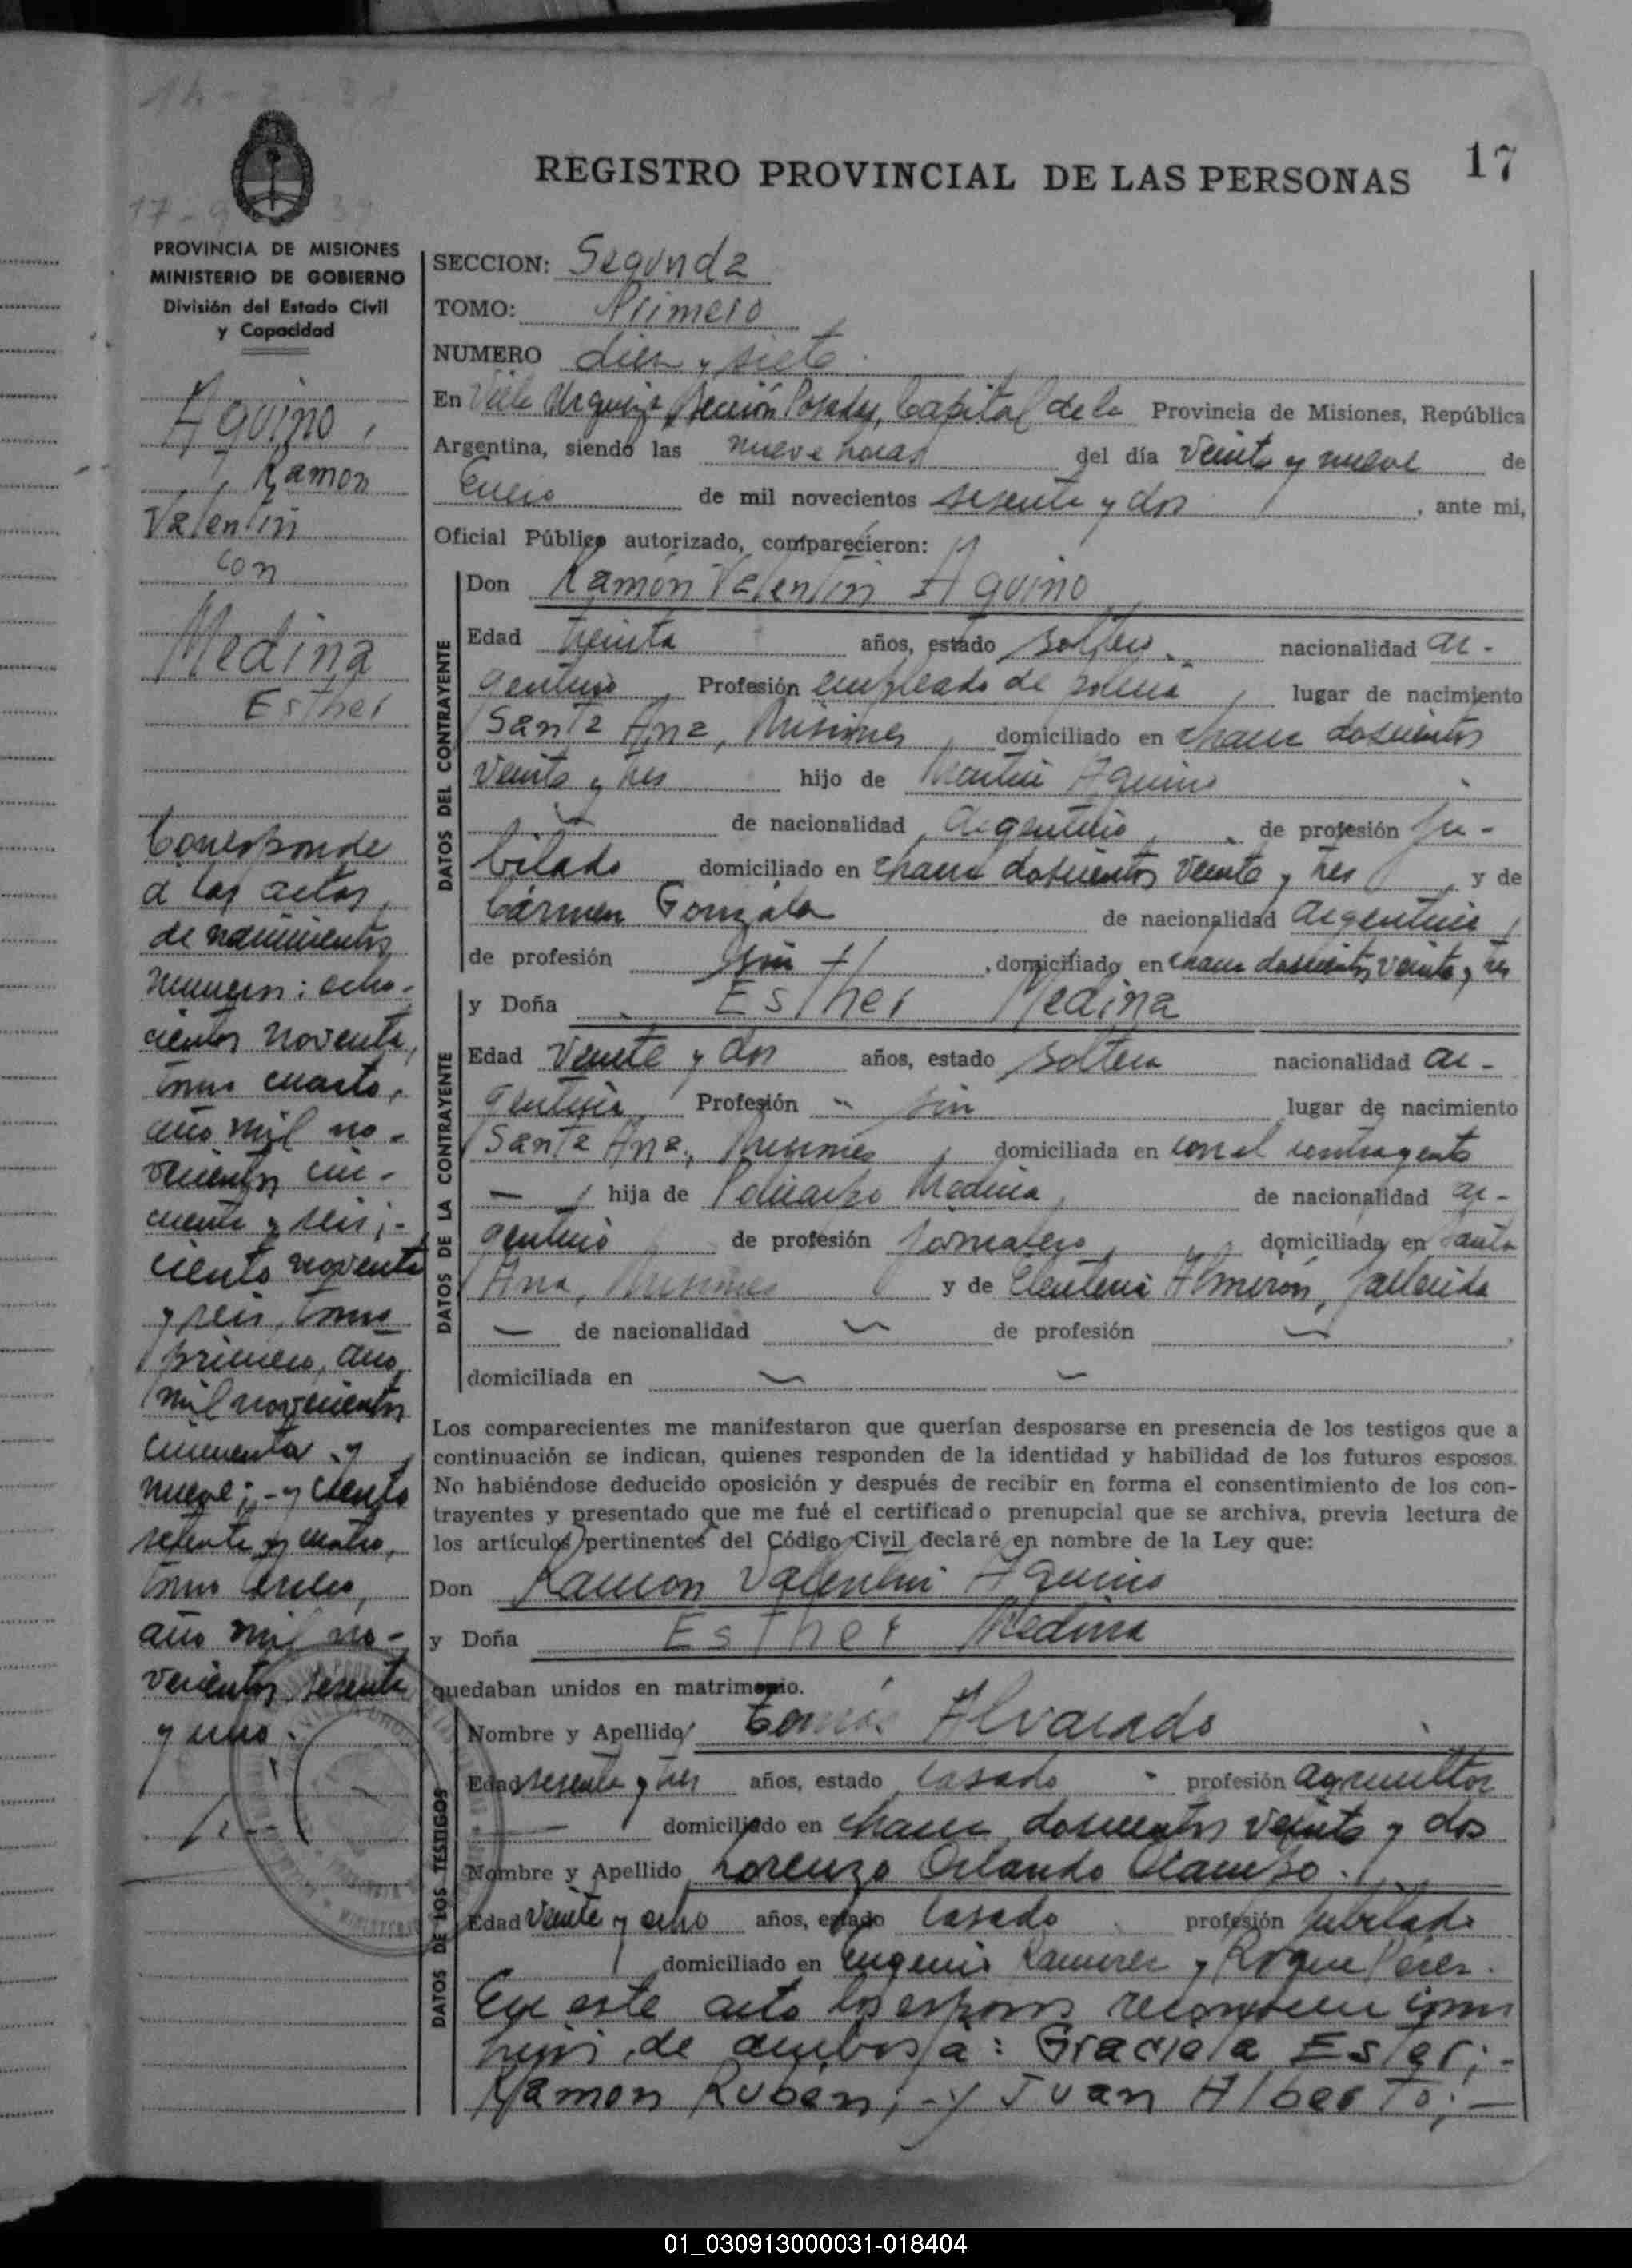 REGISTRO PROVINCIAL DE LAS PERSONAS
17
PROVINCIA DE MISIONES
MINISTERIO DE GOBIERNO
División del Estado Civil
y Capacidad
Aquino,
Ramon
Valentin
con
Medina
Esther
Corresponde
a las actas
de nacimientos
numeros: ocho-
cientos noventa,
tomo cuarto,
año mil no-
vecientos cin-
cuenta y seis;-
ciento noventa
y seis, tomo
primero, año
mil novecientos
cincuenta y
nueve;- y ciento
setenta y cuatro,
tomo tercero,
año mil no-
vecientos sesenta
y uno.
SECCION: Segunda
TOMO: Primero
NUMERO diez y siete
En Villa Urquiza, Sección Posadas, Capital de la Provincia de Misiones, República
Argentina, siendo las nueve horas del día veinte y nueve de
Enero de mil novecientos sesenta y dos, ante mi,
Oficial Público autorizado, comparecieron:
DATOS DEL CONTRAYENTE
Don Ramón Valentin Aquino
Edad treinta años, estado soltero, nacionalidad ar-
gentino, Profesión empleado de policia, lugar de nacimiento
Santa Ana, Misiones, domiciliado en chacra doscientos
veinte y tres hijo de Martin Aquino
de nacionalidad argentino, de profesión ju-
bilado domiciliado en chacra doscientos veinte y tres, y de
Cármen Gonzalez de nacionalidad argentina,
de profesión sin, domiciliado en chacra doscientos veinte y tres
DATOS DE LA CONTRAYENTE
y Doña Esther Medina
Edad veinte y dos años, estado soltera nacionalidad ar-
gentina, Profesión - sin lugar de nacimiento
Santa Ana, Misiones, domiciliada en con el contrayente
— hija de Policarpo Medina, de nacionalidad ar-
gentino de profesión jornalero, domiciliada en Santa
Ana, Misiones y de Eleuteria Almirón, fallecida
— de nacionalidad — de profesión —
domiciliada en — —
Los comparecientes me manifestaron que querían desposarse en presencia de los testigos que a
continuación se indican, quienes responden de la identidad y habilidad de los futuros esposos.
No habiéndose deducido oposición y después de recibir en forma el consentimiento de los con-
trayentes y presentado que me fué el certificado prenupcial que se archiva, previa lectura de
los artículos pertinentes del Código Civil declaré en nombre de la Ley que:
Don Ramon Valentin Aquino
y Doña Esther Medina
quedaban unidos en matrimonio.
DATOS DE LOS TESTIGOS
Nombre y Apellido Tomás Alvarado
Edad sesenta y tres años, estado casado profesión agricultor
— domiciliado en chacra doscientos veinte y dos
Nombre y Apellido Lorenzo Orlando Ocampo.
Edad veinte y ocho años, estado casado profesión jubilado
domiciliado en Eugenio Ramirez y Roque Perez.
En este acto los esposos reconocen como
hijos de ambos a: Graciela Ester;-
Ramon Ruben;- y Juan Alberto;-
01_030913000031-018404